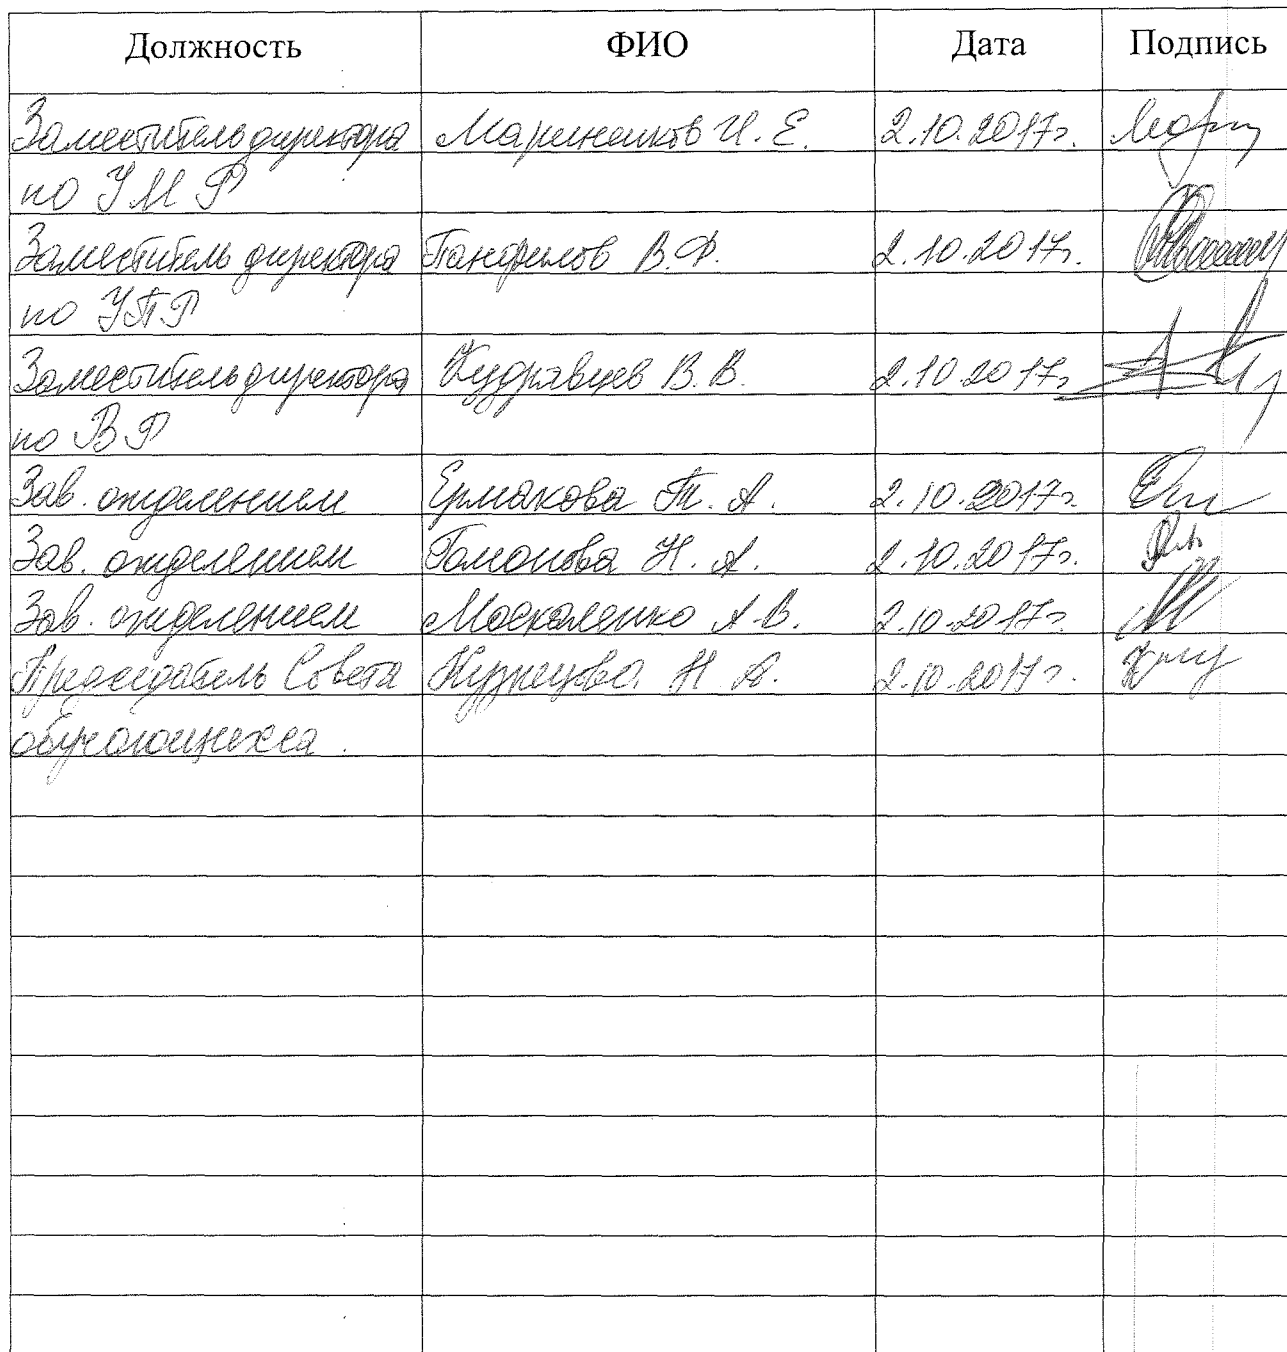 Должность ФИО Дата Подпись
Заместитель директора Мариненков И. Е. 2.10.2017г.
по УМР
Заместитель директора Панфилов В.Ф. 2.10.2017г.
по УПР
Заместитель директора Кудрявцев В.В. 2.10.2017г
по ВР
Зав. отделением Ермакова Т. А. 2.10.2017г
Зав. отделением Гомонова Н. А. 2.10.2017г.
Зав. отделением Москаленко А.В. 2.10.2017г
Председатель Совета Кузнецова Н А. 2.10.2017г.
обучающихся.